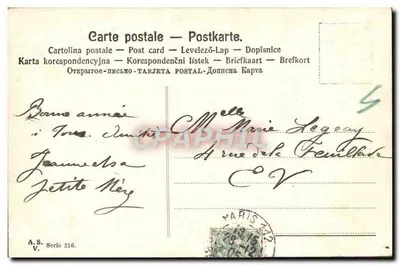 Carte postale – Postkarte.
Cartolina postale – Post card – Levelező-Lap – Dopisnice
Karta korespondencyjna – Korespondenční lístek – Briefkaart – Brefkort
Открытое-письмо-TARJETA POSTAL-Дописна Карта
Bonne année
à Tous
petite Mère
Melle Marie
4 rue de la Feuillade
EV
PARIS
A. S.
V. Serie 316.
CPAPHIL